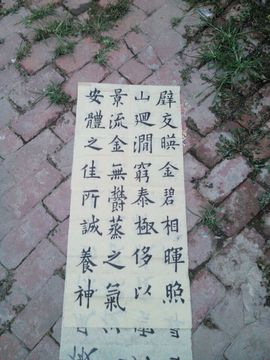 壁交暎金碧相暉照
山廻澗窮泰極侈以
景流金無鬱蒸之氣
安體之佳所誠養神